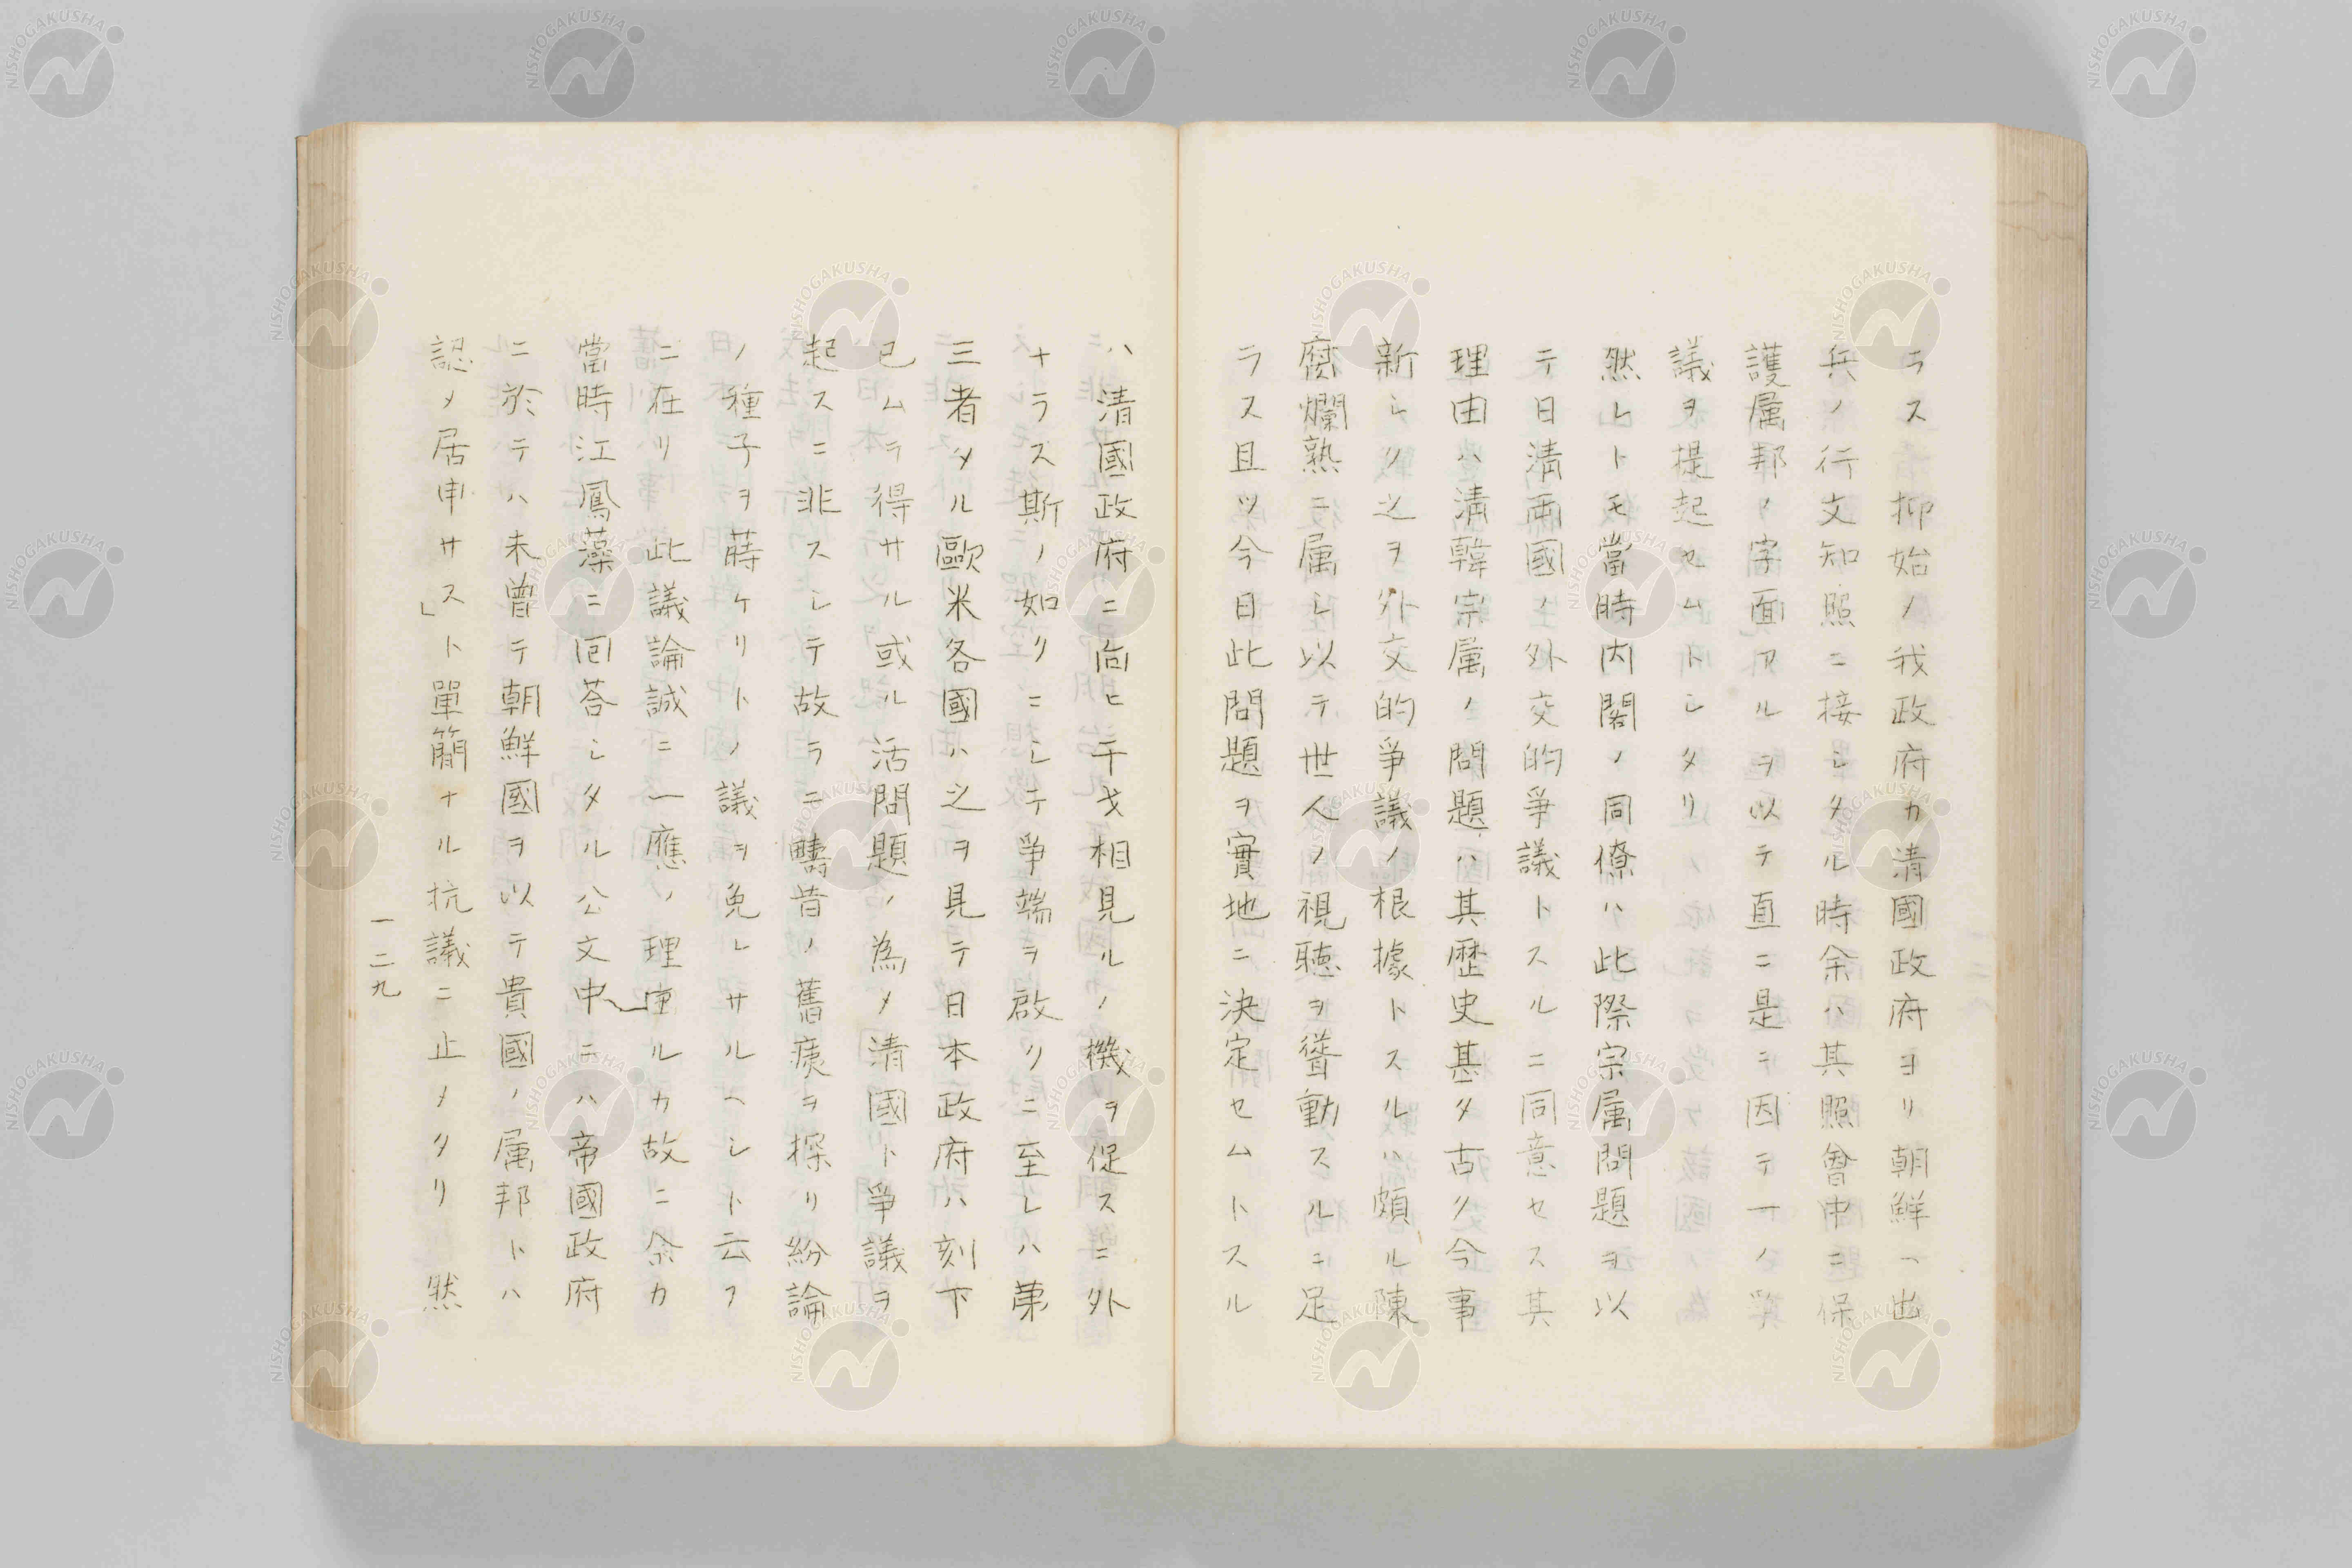 ラス抑始ノ我政府カ清國政府ヨリ朝鮮ヘ出
兵ノ行文知照ニ接シタル時余ハ其照會中ニ保
護属邦ノ字面アルヲ以テ直ニ是ニ因テ一ノ異
議ヲ提起セムトシタリ
然レトモ當時内閣ノ同僚ハ此際宗属問題ヲ以
テ日清両國ノ外交的爭議トスルニ同意セス其
理由ハ清韓宗属ノ問題ハ其歴史甚タ古ク今事
新シク之ヲ外交的爭議ノ根據トスルハ頗ル陳
腐爛熟ニ属シ以テ世人ノ視聴ヲ聳動スルニ足
ラス且ツ今日此問題ヲ實地ニ決定セムトスル
ハ清國政府ニ向ヒ干戈相見ルノ機ヲ促スニ外
ナラス斯ノ如クニシテ爭端ヲ啟クニ至レハ第
三者タル歐米各國ハ之ヲ見テ日本政府ハ刻下
已ムヲ得サル或ル活問題ノ為メ清國ト爭議ヲ
起スニ非スシテ故ラニ疇昔ノ舊痍ヲ探リ紛論
ノ種子ヲ蒔ケリトノ議ヲ免レサルヘシト云フ
ニ在リ 此議論誠ニ一應ノ理由アルカ故ニ余カ
當時江鳳藻ニ囘荅シタル公文中ニハ帝國政府
ニ於テハ未曾テ朝鮮國ヲ以テ貴國ノ属邦トハ
認メ居申サス」ト單簡ナル抗議ニ止メタリ 然
一二九
NISHOGAKUSHA